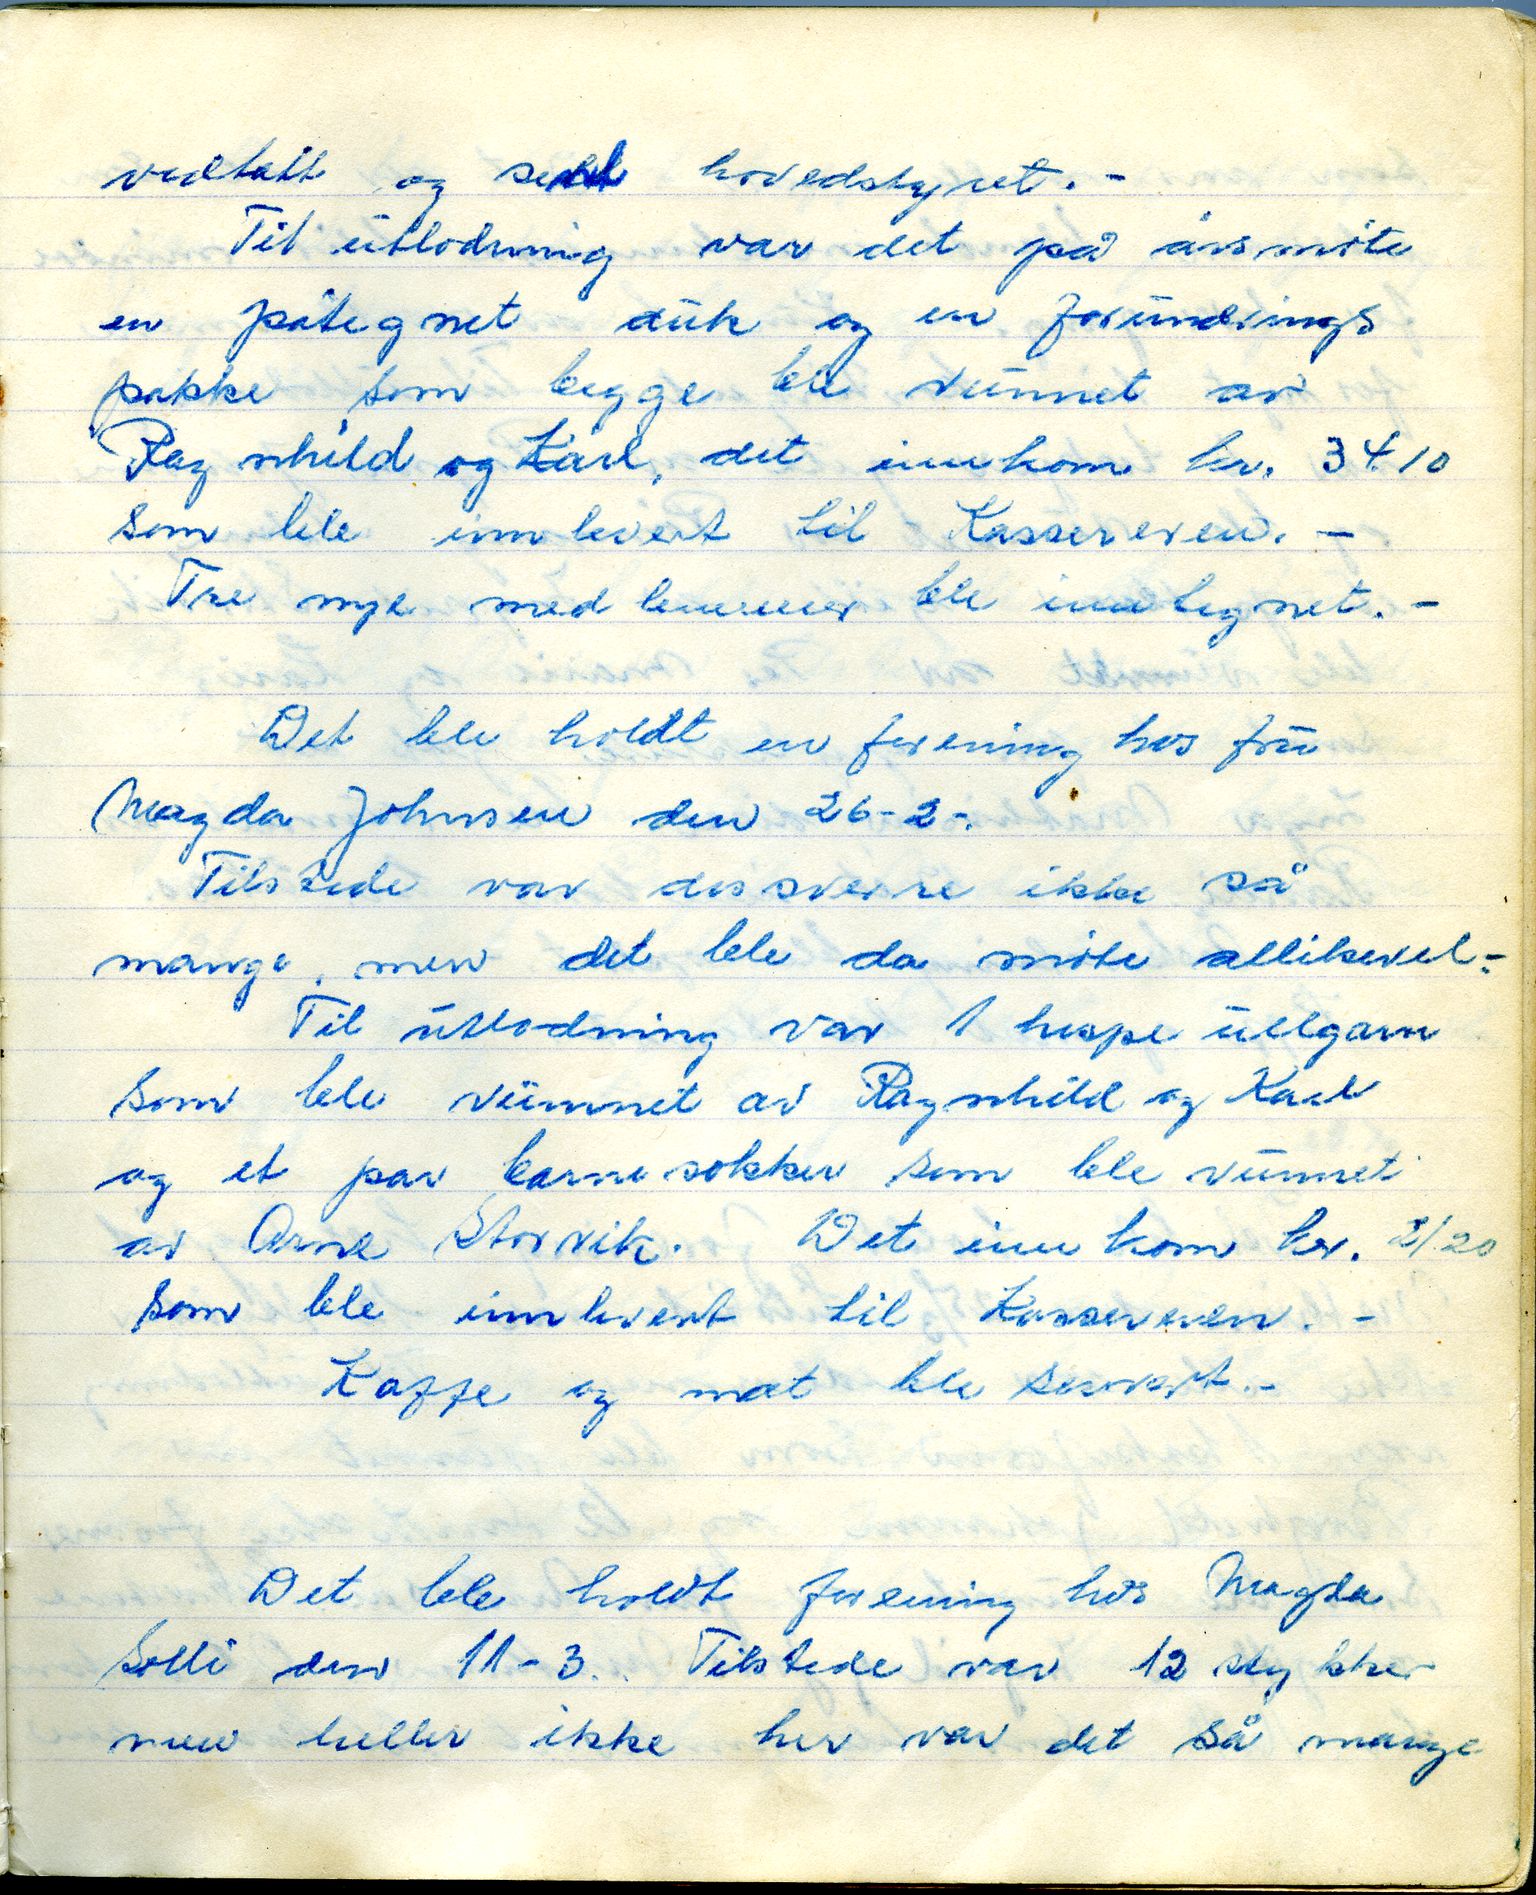 vedtatt og sendt hovedstyret. -
Til utlodning var det på årsmöte
en påtegnet duk og en forundrings
pakke som begge ble vunnet av
Ragnhild og Karl, det innkom kr. 34.10
som ble innlevert til Kassereren. -
Tre nye medlemmer ble inntegnet. -
Det ble holdt en forening hos fru
Magda Johnsen den 26-2-.
Tilstede var dessverre ikke så
mange, men det ble da möte allikevel.-
Til utlodning var 1 hespe ullgarn
som ble vunnet av Ragnhild og Karl
og et par barnesokker som ble vunnet
av Arne Storvik. Det innkom kr.
som ble innlevert til Kassereren. -
Kaffe og mat ble servert. -
Det ble holdt forening hos Magda
Solli den 11-3. Tilstede var 12 stykker
men heller ikke her var det så mange